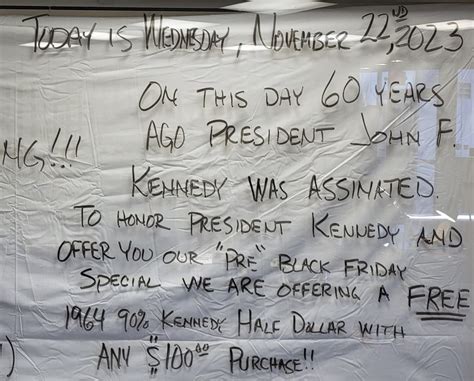 TODAY IS WEDNESDAY, NOVEMBER 22ND, 2023
ON THIS DAY 60 YEARS
NG!!! AGO PRESIDENT JOHN F.
KENNEDY WAS ASSINATED.
TO HONOR PRESIDENT KENNEDY AND
OFFER YOU OUR "PRE" BLACK FRIDAY
SPECIAL WE ARE OFFERING A FREE
1964 90% KENNEDY HALF DOLLAR WITH
) ANY $100.00 PURCHASE!!